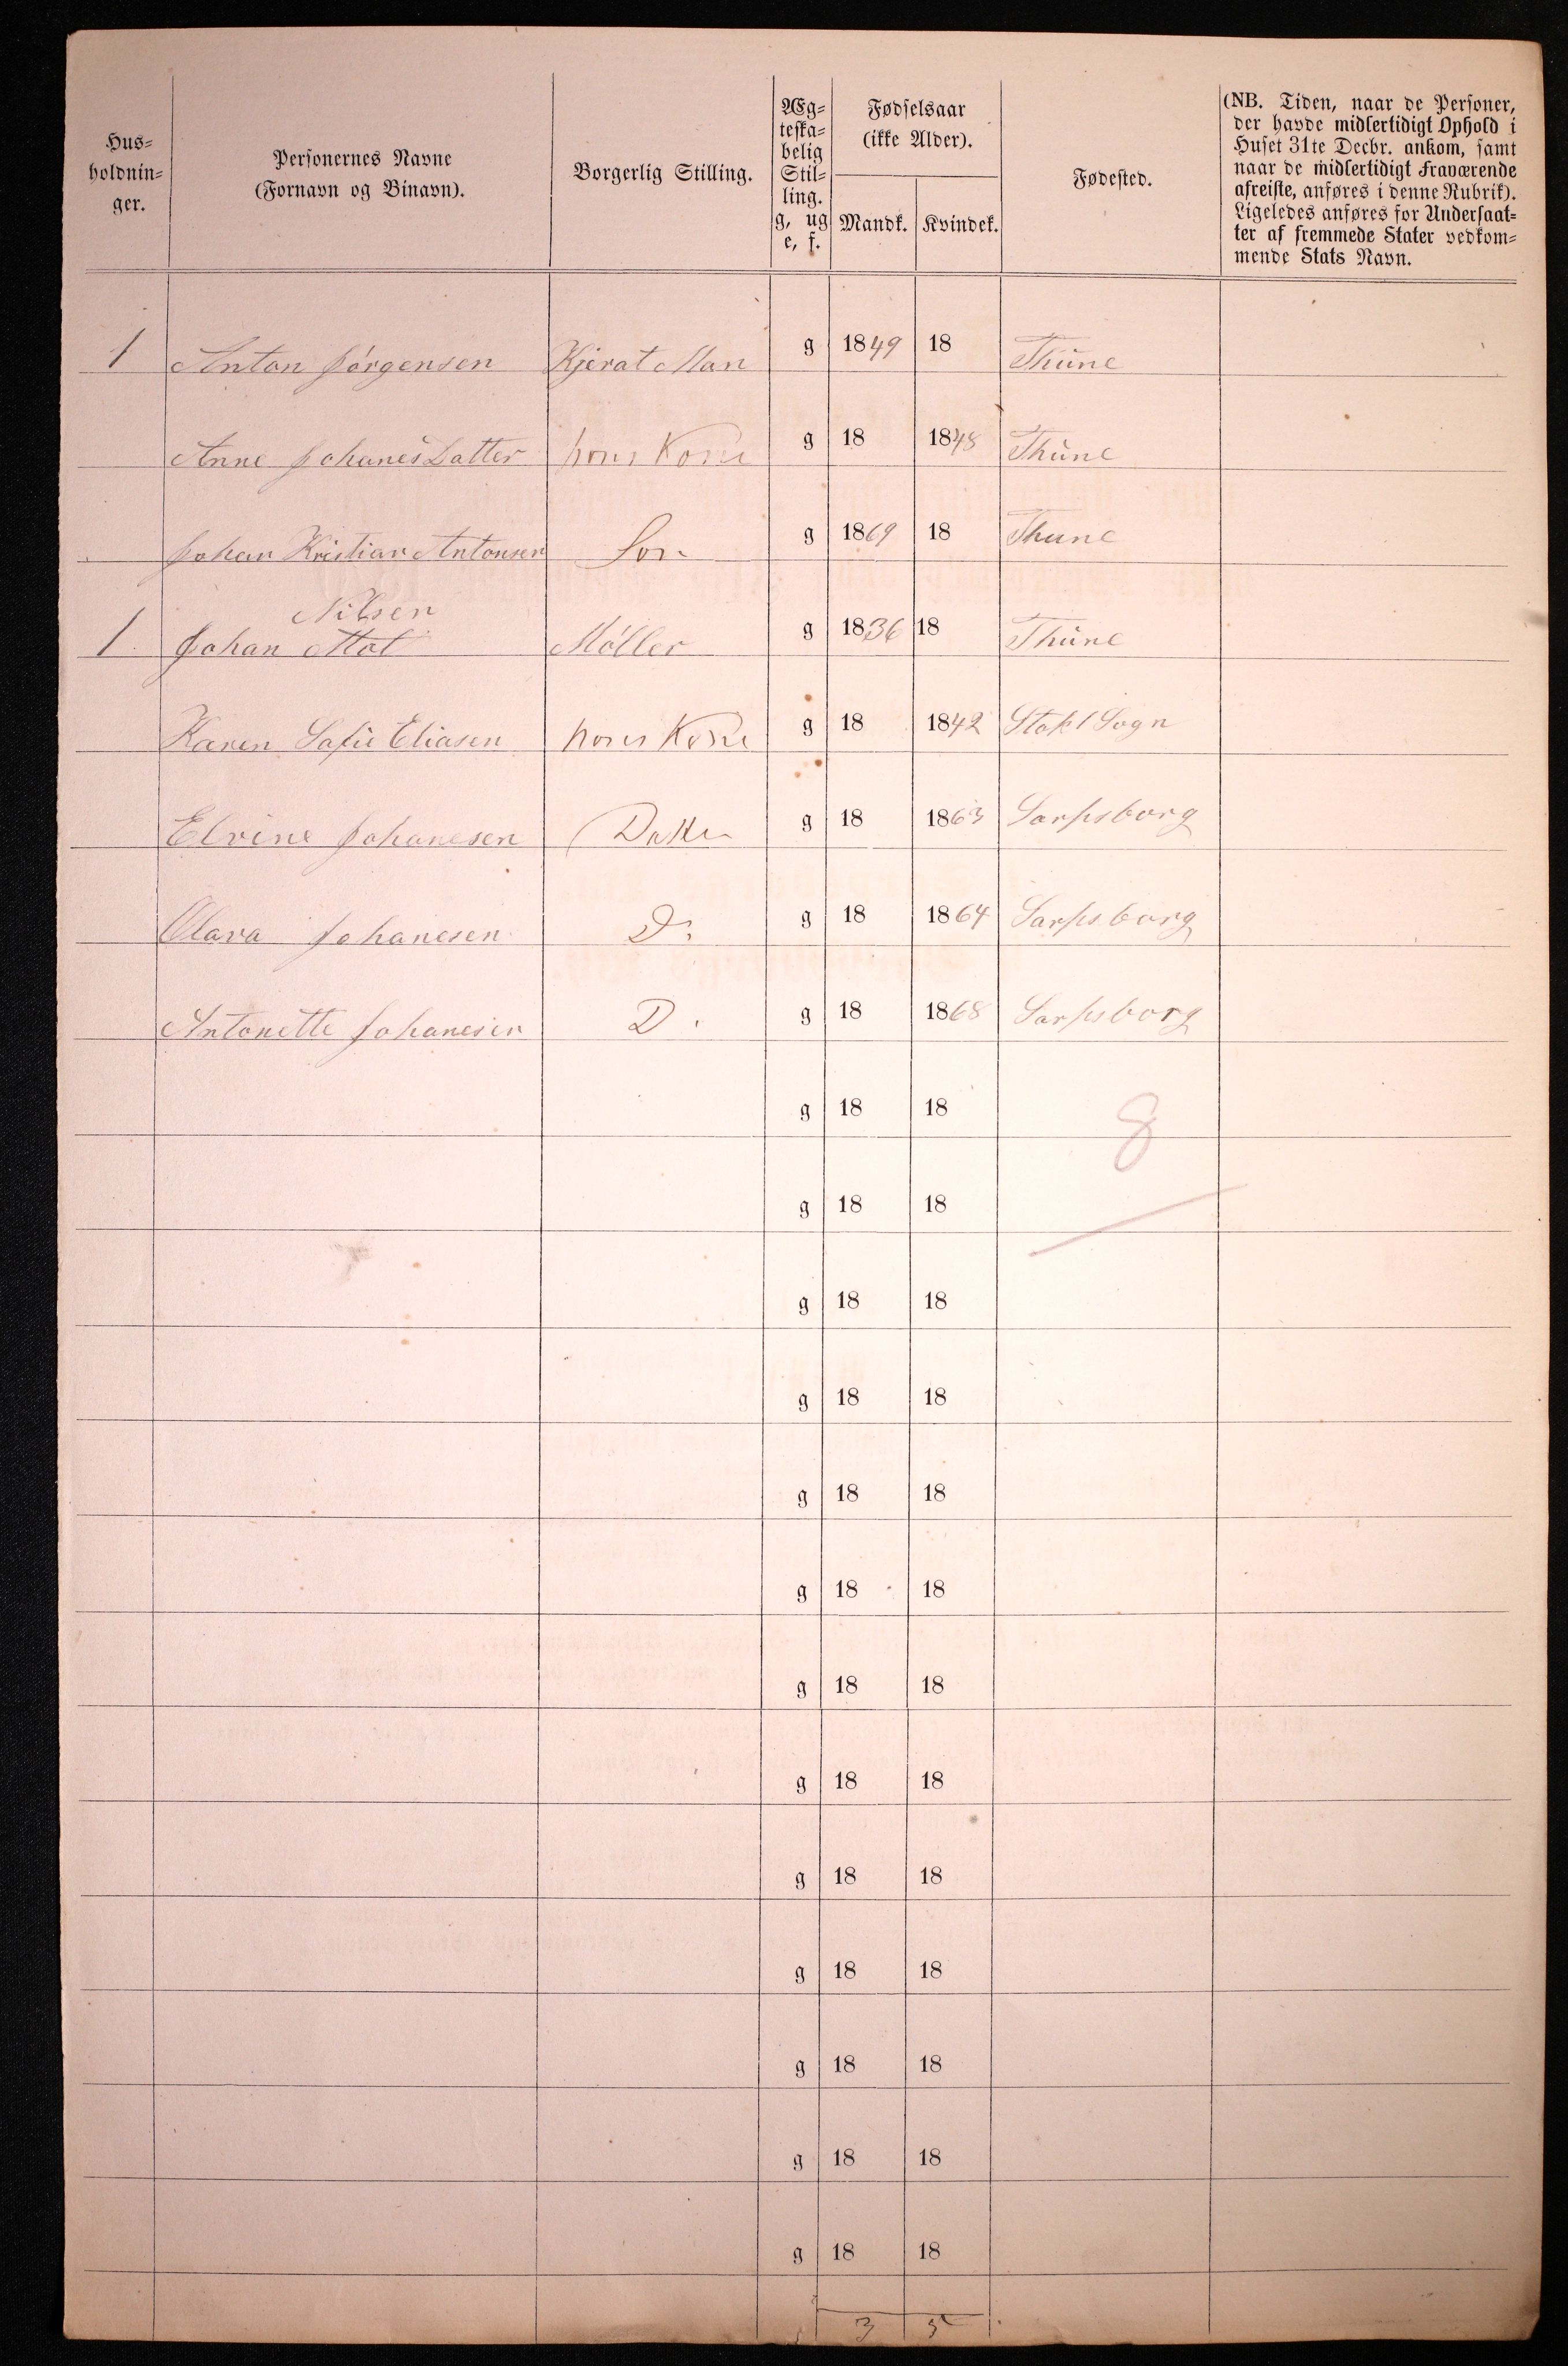 Hus-
holdnin-
ger.
Personernes Navne
(Fornavn og Binavn).
Borgerlig Stilling.
Æg-
teska-
belig
Stil-
ling.
g, ug
e, f.
Fødselsaar
(ikke Alder).
Mandk. Kvindek.
Fødested.
(NB. Tiden, naar de Personer,
der havde midlertidigt Ophold i
Huset 31te Decbr. ankom, samt
naar de midlertidigt Fraværende
afreiste, anføres i denne Rubrik).
Ligeledes anføres for Undersaat-
ter af fremmede Stater vedkom-
mende Stats Navn.
1 Anton Jørgensen Kjerat Man g 1849 18 Thune
Anne JohanesDatter hans Kone g 18 1848 Thune
Johan Kristian Antonsen Søn g 1869 18 Thune
Nilsen
1 Johan Møller g 1836 18 Thune
Karen Sofie Eliasen hans Kone g 18 1842 Sogn
Elvine Johanesen Datter g 18 1863 Sarpsborg
Olava Johanesen D. g 18 1864 Sarpsborg
Antonette Johanesen D. g 18 1868 Sarpsborg
g 18 18 8
g 18 18
g 18 18
g 18 18
g 18 18
g 18 18
g 18 18
g 18 18
g 18 18
g 18 18
g 18 18
g 18 18
g 18 18
3 5